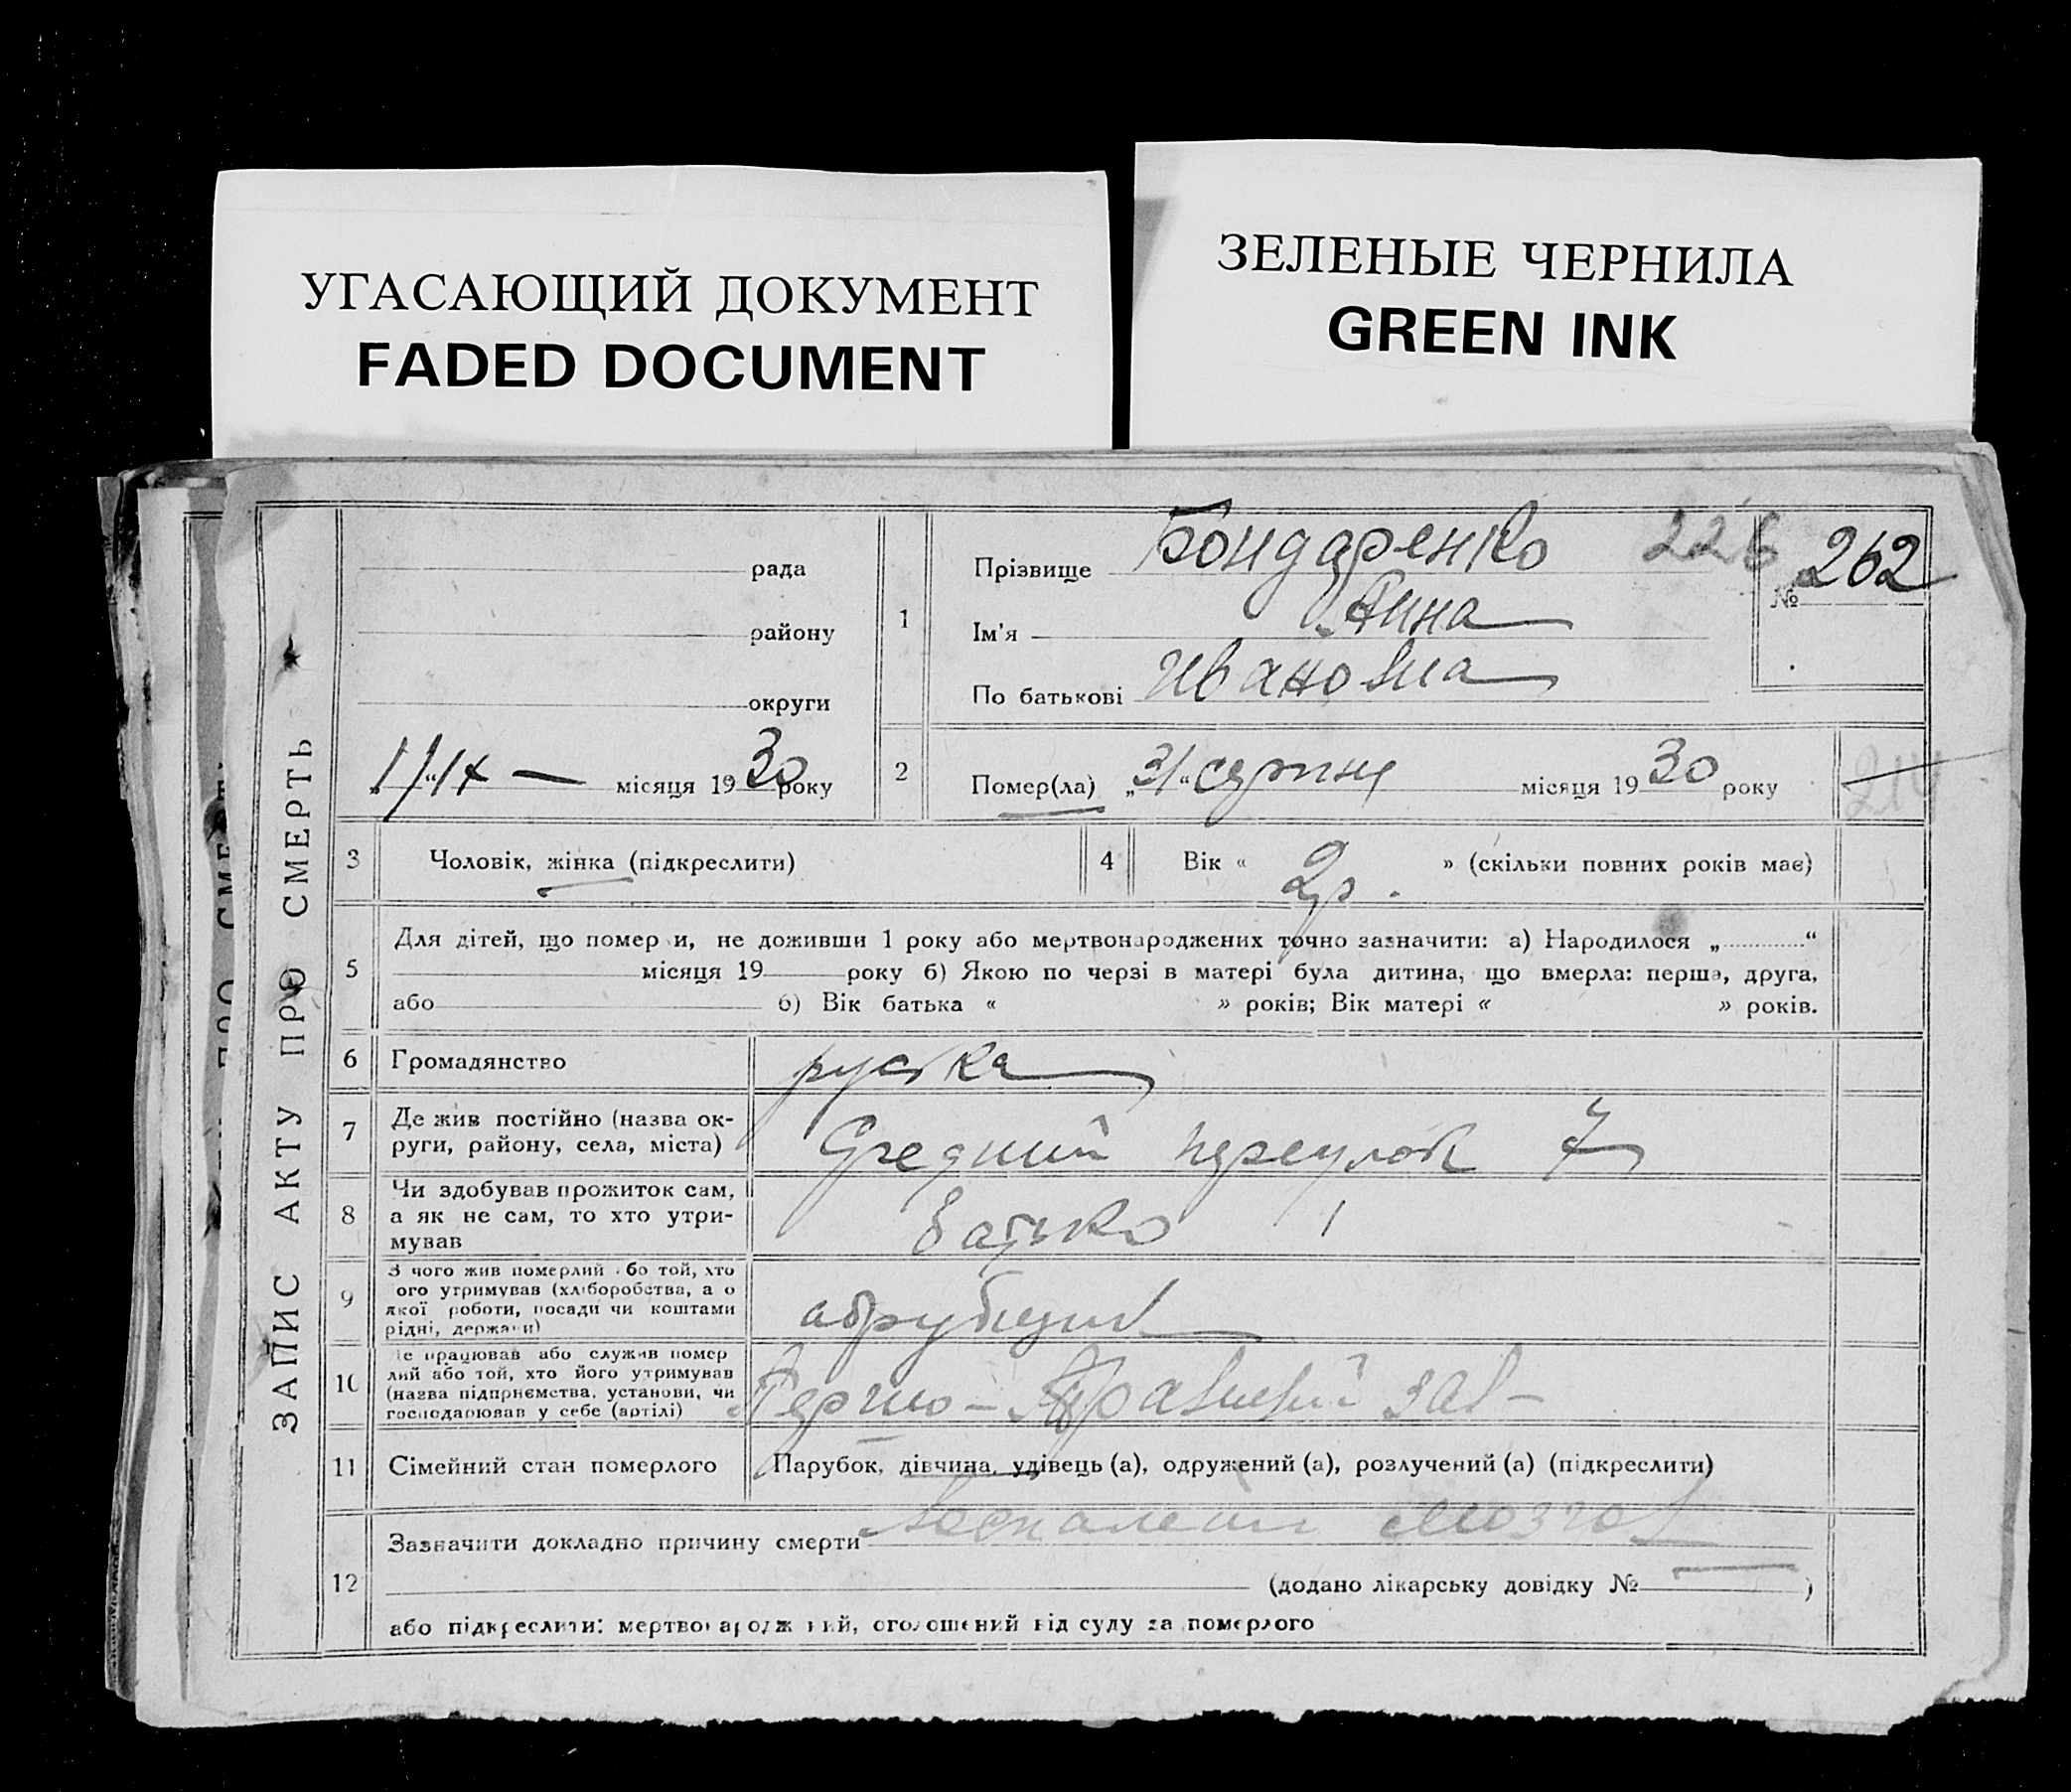 УГАСАЮЩИЙ ДОКУМЕНТ
FADED DOCUMENT
ЗЕЛЕНЫЕ ЧЕРНИЛА
GREEN INK
ЗАПИС АКТУ ПРО СМЕРТЬ
рада
району
округи
1/IX — місяця 1930 року
1
Прізвище Бондаренко
Ім'я Анна
По батькові Ивановна
226
№ 262
2
Помер(ла) „31“ серпня місяця 1930 року
214
3 Чоловік, жінка (підкреслити)
4 Вік « 2 р. » (скільки повних років має)
5 Для дітей, що померли, не доживши 1 року або мертвонароджених точно зазначити: а) Народилося „ “
місяця 19 року б) Якою по черзі в матері була дитина, що вмерла: перша, друга,
або б) Вік батька « » років; Вік матері « » років.
6 Громадянство руська
7 Де жив постійно (назва ок-
руги, району, села, міста) Средний переулок 7
8 Чи здобував прожиток сам,
а як не сам, то хто утри-
мував батько
9 З чого жив померлий або той, хто
його утримував (хліборобства, або
якої роботи, посади чи коштами
рідні, держави) обрубщик
10 Де працював або служив помер
лий або той, хто його утримував
(назва підприємства, установи, чи
господарював у себе (артілі) зав—
11 Сімейний стан померлого Парубок, дівчина, удівець (а), одружений (а), розлучений (а) (підкреслити)
12 Зазначити докладно причину смерти Воспаление мозгов
(додано лікарську довідку № — )
або підкреслити: мертвонароджений, оголошений від суду за померлого